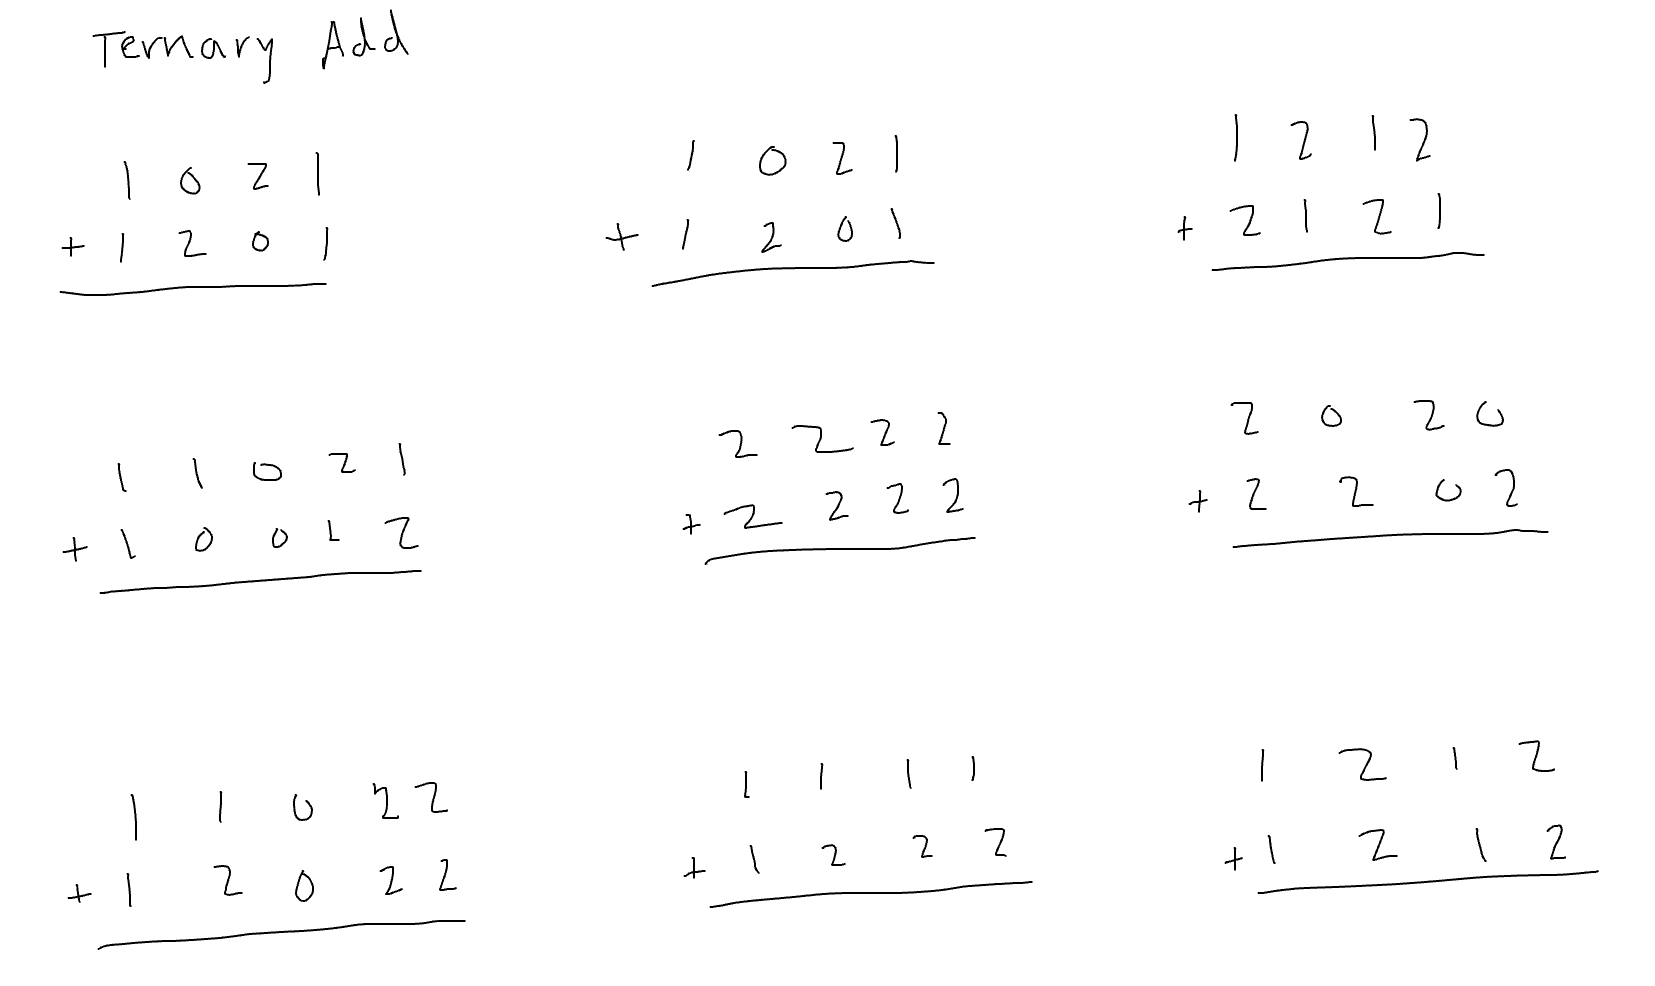 Ternary Add
1 0 2 1
+ 1 2 0 1
1 0 2 1
+ 1 2 0 1
1 2 1 2
+ 2 1 2 1
1 1 0 2 1
+ 1 0 0 1 2
2 2 2 2
+ 2 2 2 2
2 0 2 0
+ 2 2 0 2
1 1 0 2 2
+ 1 2 0 2 2
1 1 1 1
+ 1 2 2 2
1 2 1 2
+ 1 2 1 2